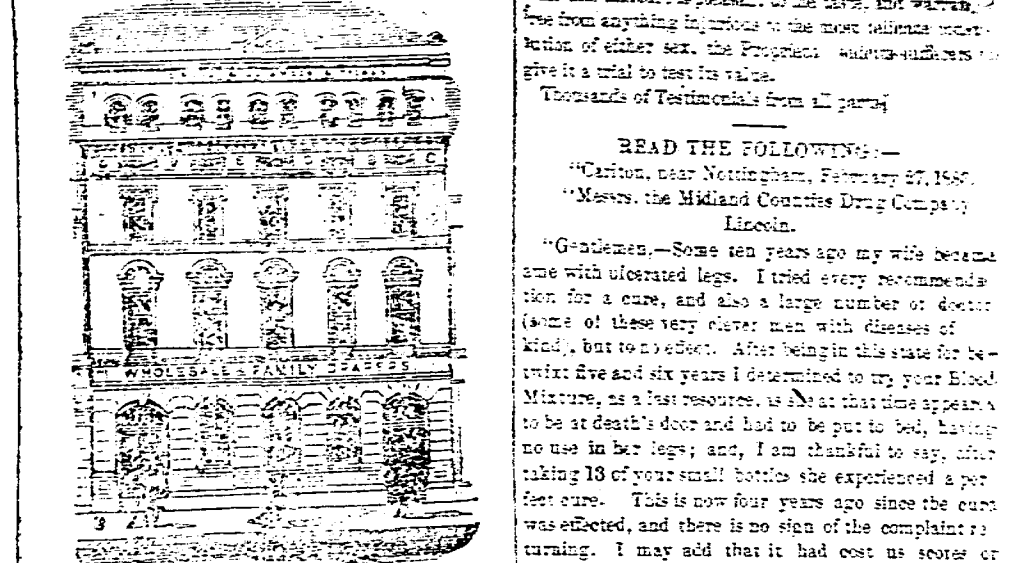 WHOLESALE & FAMILY DRAPERS
free from anything injurious to the most delicate
of either sex, the
give it a trial to test its value.
Thousands of Testimonials from all parts
READ THE FOLLOWING:—
"Carlton, near Nottingham, February 27,
"Messrs. the Midland Counties Drug Company
Lincoln.
"Gentlemen,—Some ten years ago my wife became
ame with ulcerated legs. I tried every recommenda-
tion for a cure, and also a large number of doctors
(some of these very clever men with diseases of
kind), but to no effect. After being in this state for be-
twixt five and six years I determined to try your Blood
Mixture, as a last resource, as she at that time appeared
to be at death's door and had to be put to bed, having
no use in her legs; and, I am thankful to say, after
taking 13 of your small bottles she experienced a per-
fect cure. This is now four years ago since the cure
was effected, and there is no sign of the complaint re-
turning. I may add that it had cost us scores of